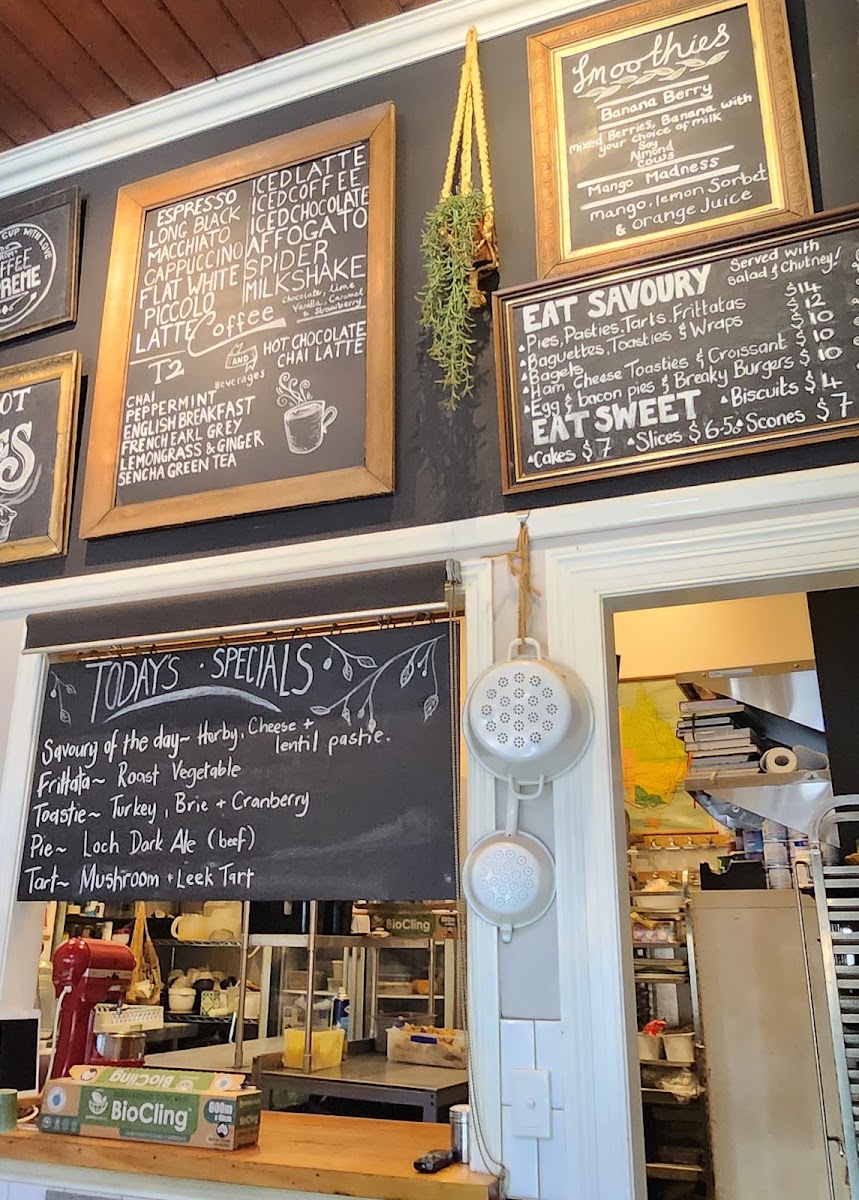 CUP WITH LOVE
FROM
COFFEE
SUPREME
OT
ES
ESPRESSO
LONG BLACK
MACCHIATO
CAPPUCCINO
FLAT WHITE
PICCOLO
LATTE
ICED LATTE
ICED COFFEE
ICED CHOCOLATE
AFFOGATO
SPIDER
MILKSHAKE
chocolate, Lime
Vanilla, Caramel
& Strawberry
Coffee
AND
HOT CHOCOLATE
CHAI LATTE
T2
Beverages
CHAI
PEPPERMINT
ENGLISH BREAKFAST
FRENCH EARL GREY
LEMONGRASS & GINGER
SENCHA GREEN TEA
Smoothies
Banana Berry
mixed Berries, Banana with
your choice of milk
Soy
Almond
cows
Mango Madness
mango, lemon Sorbet
& orange Juice
EAT SAVOURY
Served with
salad & Chutney!
Pies, Pasties, Tarts, Frittatas $14
Baguettes, Toasties & Wraps $12
Bagels $10
Ham Cheese Toasties & Croissant $10
Egg & bacon pies & Breaky Burgers $10
EAT SWEET
Biscuits $4
Cakes $7 Slices $6.50 Scones $7
TODAY'S · SPECIALS
Savoury of the day~ Herby, Cheese +
lentil pastie.
Frittata~ Roast Vegetable
Toastie~ Turkey, Brie + Cranberry
Pie~ Loch Dark Ale (beef)
Tart~ Mushroom + Leek Tart
BioCling
BioCling
BioCling
600m